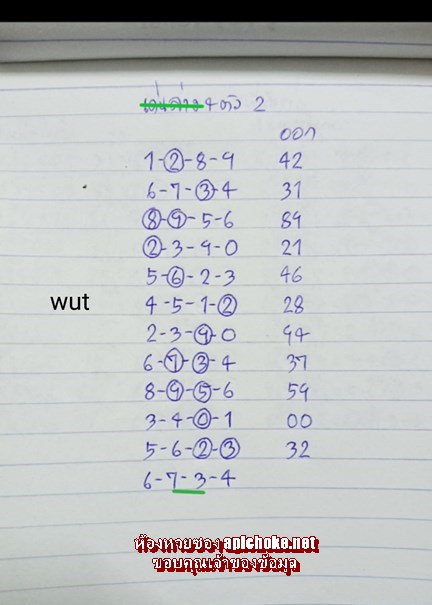 เด่นล่าง 4 ตัว 2
ออก
1-2-8-9 42
6-7-3-4 31
8-9-5-6 89
2-3-9-0 21
5-6-2-3 46
wut 4-5-1-2 28
2-3-9-0 94
6-7-3-4 37
8-9-5-6 59
3-4-0-1 00
5-6-2-3 32
6-7-3-4
ห้องหวยซอง apichoke.net
ขอบคุณเจ้าของข้อมูล